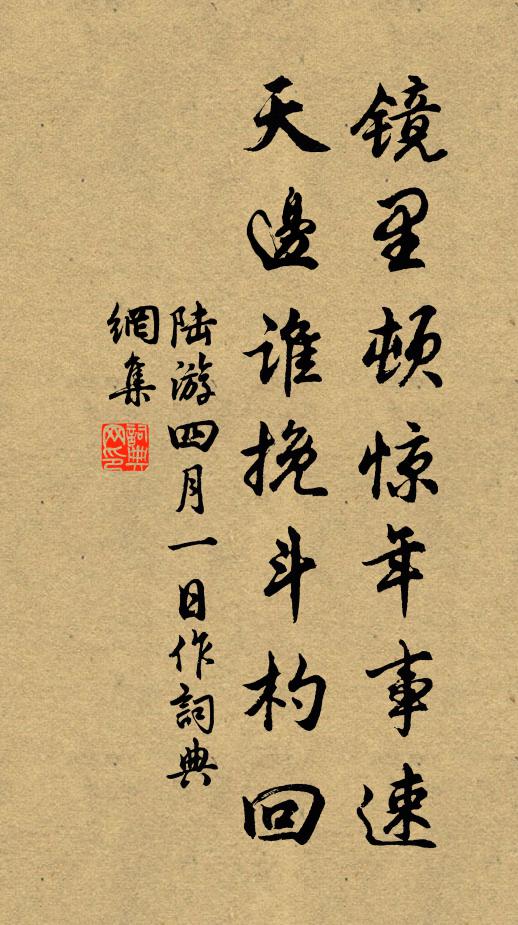 镜里顿惊年事速
天邊谁挽斗杓回
陆游四月一日作詞典
網集
詞典
网印